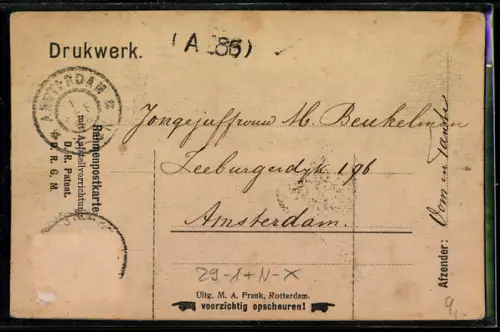 Drukwerk.
(A 86)
AMSTERDAM
Rahmenpostkarte
mit Aufstellvorrichtung
D. R. Patent.
D. R. G. M.
Jongejuffrouw M. Beukelman
Zeeburgerdijk 196
Amsterdam.
Afzender: Oom en Tante
29-1+N-X
Uitg. M. A. Frank, Rotterdam.
voorzichtig opscheuren!
9,-